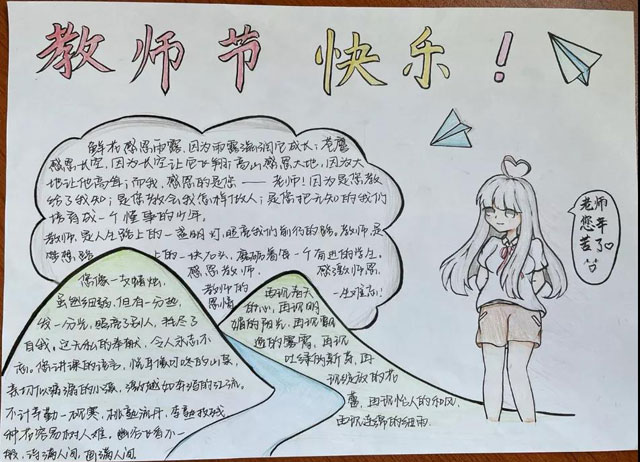 教师节 快乐!
鲜花感恩雨露,因为雨露滋润它成长;苍鹰
感恩长空,因为长空让它飞翔;高山感恩大地,因为大
地让他高耸;而我,感恩的是您——老师!因为是您教
给了我知;是您教会我怎样做人;是您把无知的我们
培育成一个懂事的少年。
教师,是人生路上的一盏明灯,照亮我们前行的路。教师,是
上的一块石头,磨砺着每一个有进的学生。
感恩教师,感激师恩
教师的恩情 一生难忘!
您像一支蜡烛,
虽然细弱,但有一分热,
发一分光,照亮了别人,耗尽了
自我。这无私的奉献,令人永志不
忘。您讲课的语言,悦耳像叮咚的山泉,
亲切似潺潺的小溪,激越如奔泻的江流。
种花容易树人难。幽谷飞香不一
般,诗满人间,画满人间
再讴春天
的心,再讴明
媚的阳光,再讴飘
逸的雾霭,再讴
吐绿的新芽,再
讴绽放的花
蕾,再讴怡人的和风,
再讴连绵的细雨
老师
您辛
苦了